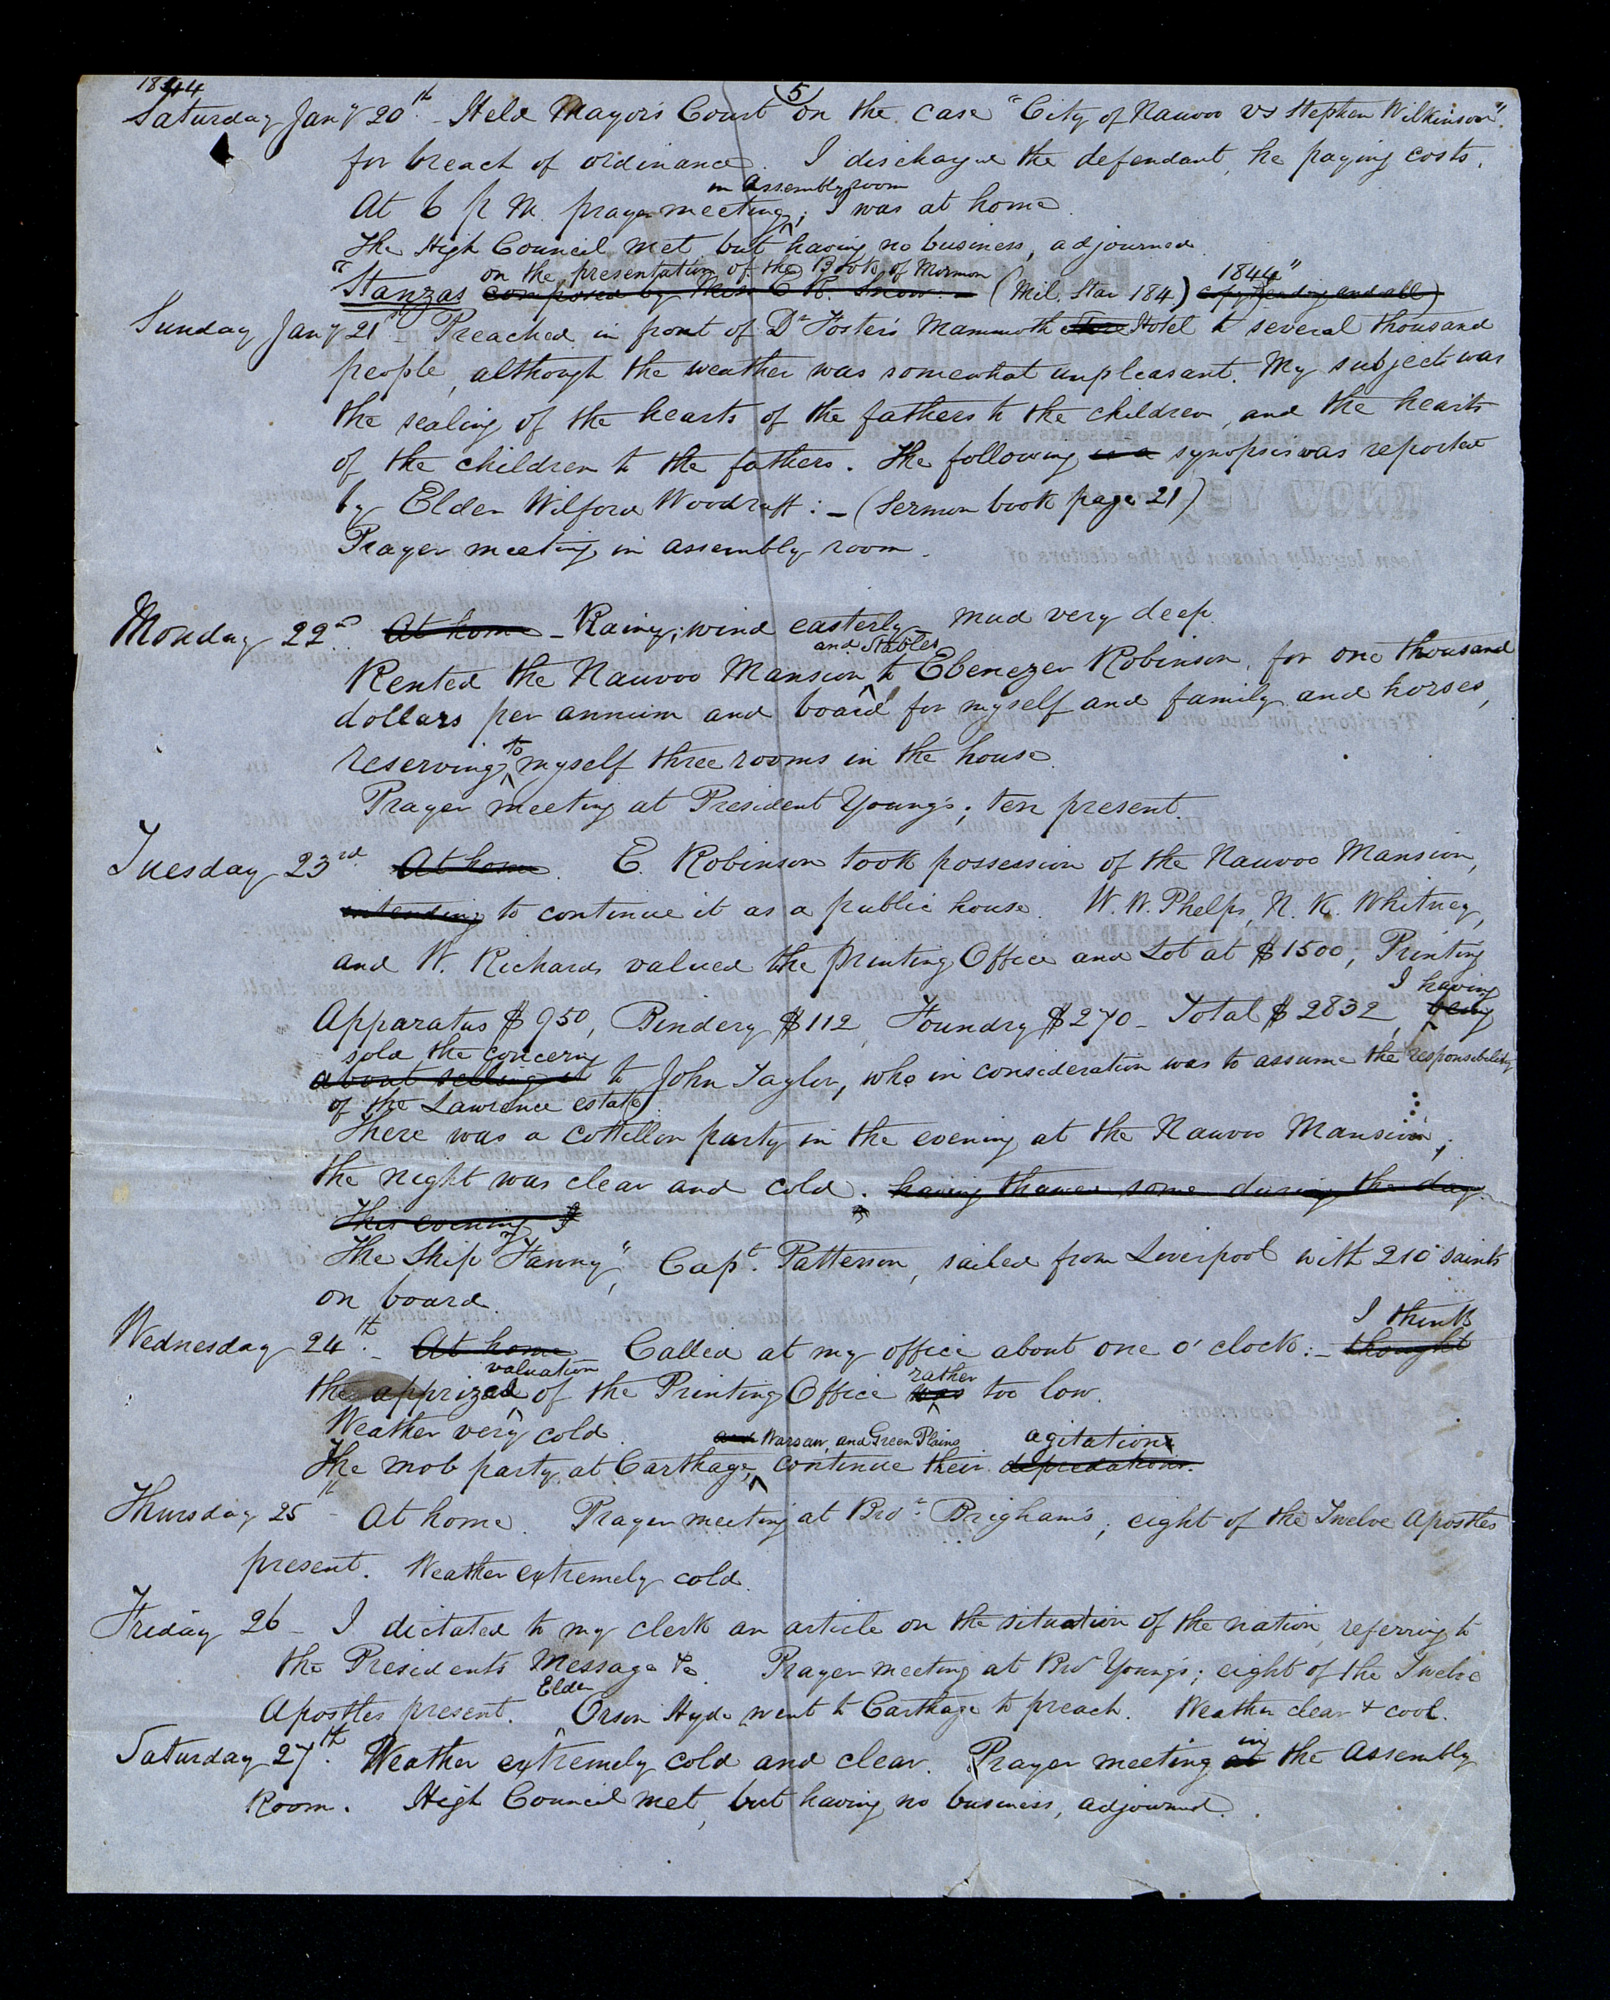 1844
(5)
Saturday Jany 20th. Held Mayor's Court on the case "City of Nauvoo vs Stephen Wilkinson".
for breach of ordinance. I discharged the defendant, he paying costs.
in Assembly room
At 6 p M. prayer meeting; I was at home.
The High Council met, but having no business, adjourned.
on the presentation of the Book of Mormon 1844"
"Stanzas composed by Miss E R. Snow. (Mil. Star 184) copy heading and all)
Sunday Jany 21st Preached in front of Dr Foster's Mammoth Store Hotel to several thousand
people, although the weather was somewhat unpleasant. My subject was
the sealing of the hearts of the fathers to the children, and the hearts
of the children to the fathers. The following is a synopsis was reported
by Elder Wilford Woodruff: - (Sermon book page 21)
Prayer meeting in assembly room.
Monday 22nd At home - Rainy; wind easterly - mud very deep.
and Stables
Rented the Nauvoo Mansion to Ebenezer Robinson, for one thousand
dollars per annum and board for myself and family and horses,
to
reserving myself three rooms in the house.
Prayer meeting at President Young's; ten present.
Tuesday 23rd At home. E. Robinson took possession of the Nauvoo Mansion,
intending to continue it as a public house. W. W. Phelps, N. K. Whitney,
and W. Richards valued the printing Office and Lot at $1500, Printing
I having
Apparatus $950, Bindery $112, Foundry $270 - Total $2832, being
sold the concern
about selling it to John Taylor, who in consideration was to assume the responsibility
of the Lawrence estate.
There was a cottillon party in the evening at the Nauvoo Mansion;
the night was clear and cold. having thawed some during the day.
This evening I
The Ship "Fanny," Capt. Patterson, sailed from Liverpool with 210 saints
on board.
I think
Wednesday 24th. - At home Called at my office about one o'clock: - thought
valuation rather
the apprizal of the Printing Office was too low.
Weather very cold.
and Warsaw, and Green Plains agitation
The mob party at Carthage, continue their depredations.
Thursday 25th - At home. Prayer meeting at Bror. Brigham's; eight of the Twelve Apostles
present. Weather extremely cold.
Friday 26 - I dictated to my clerk an article on the situation of the nation, referring to
the Presidents Message &c. Prayer meeting at Bror Young's; eight of the Twelve
Elder
Apostles present. Orson Hyde went to Carthage to preach. Weather clear & cool.
in
Saturday 27th. Weather extremely cold and clear. Prayer meeting at the Assembly
Room. High Council met, but having no business, adjourned.